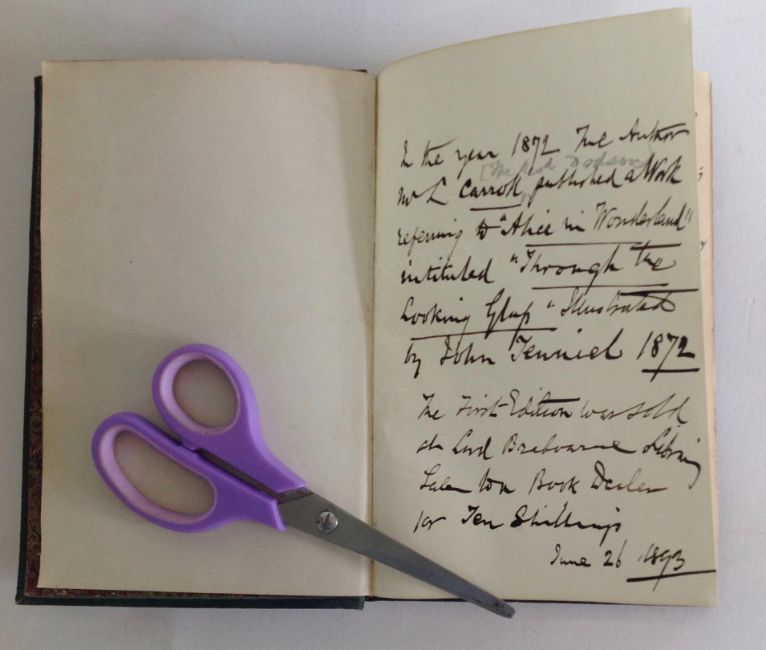 In the year 1872 The Author
[The Revd Dodgson]
Mr L Carroll, published a Work
referring to "Alice in Wonderland"
intituled "Through the
Looking Glass" Illustrated
by John Tenniel 1872
The First Edition was sold
at Lord Brabourne Library
Sale to a Book Dealer
for Ten Shillings
June 26 1893